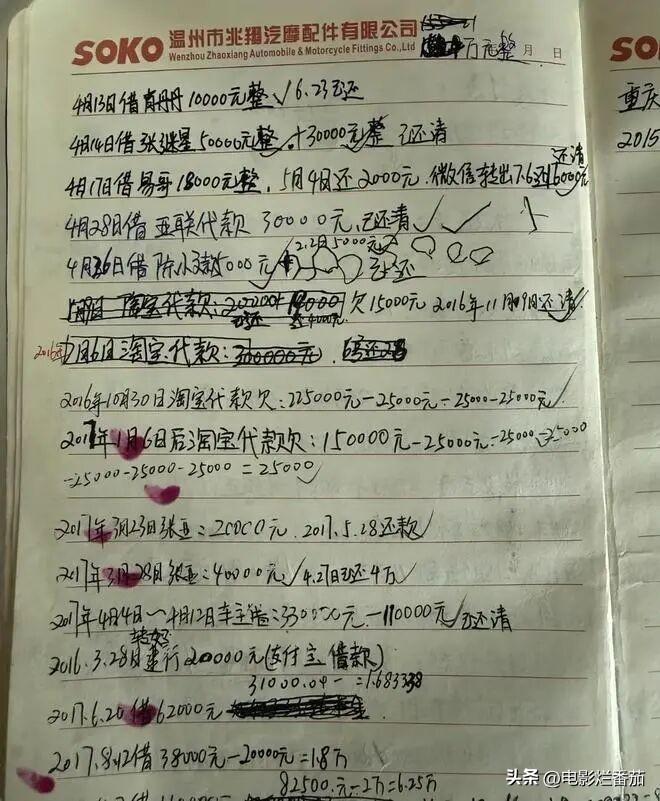 SOKO 温州市兆翔汽摩配件有限公司
Wenzhou Zhaoxiang Automobile & Motorcycle Fittings Co.,Ltd
万元整 月 日
SO
重庆
2015
4月13日借肖丹丹10000元整 √ 6.23已还
4月14日借张继星50000元整 +30000元整 已还清
还清
4月17日借易哥18000元整, 5月4日还2000元.微信转出
4月28日借亚联代款 30000元,已还清 √ √
2.2日5000元
4月30日借陈小 000元 已还
淘宝代款: 欠15000元 2016年11月19日还清
2016年 月6日淘宝代款: 300000元.
2016年10月30日淘宝代款欠: 225000元-25000元-25000-25000元√
2017年1月6日后淘宝代款欠: 150000元-25000元-25000-25000
-25000-25000-25000=25000√
2017年3月23日张亚: 20000元. 2017.5.28还款√
2017年3月28日张亚: 40000元√ 4.27日已还4万√
2017年4月4日~4月12日车主借: 330000元-110000元√已还清
2016.3.28日建行20000元(支付宝借款)
2017.6.20借62000元
2017.8.12借38000元-20000元=1.8万
82500.元-2万=6.25万
头条 @电影烂番茄